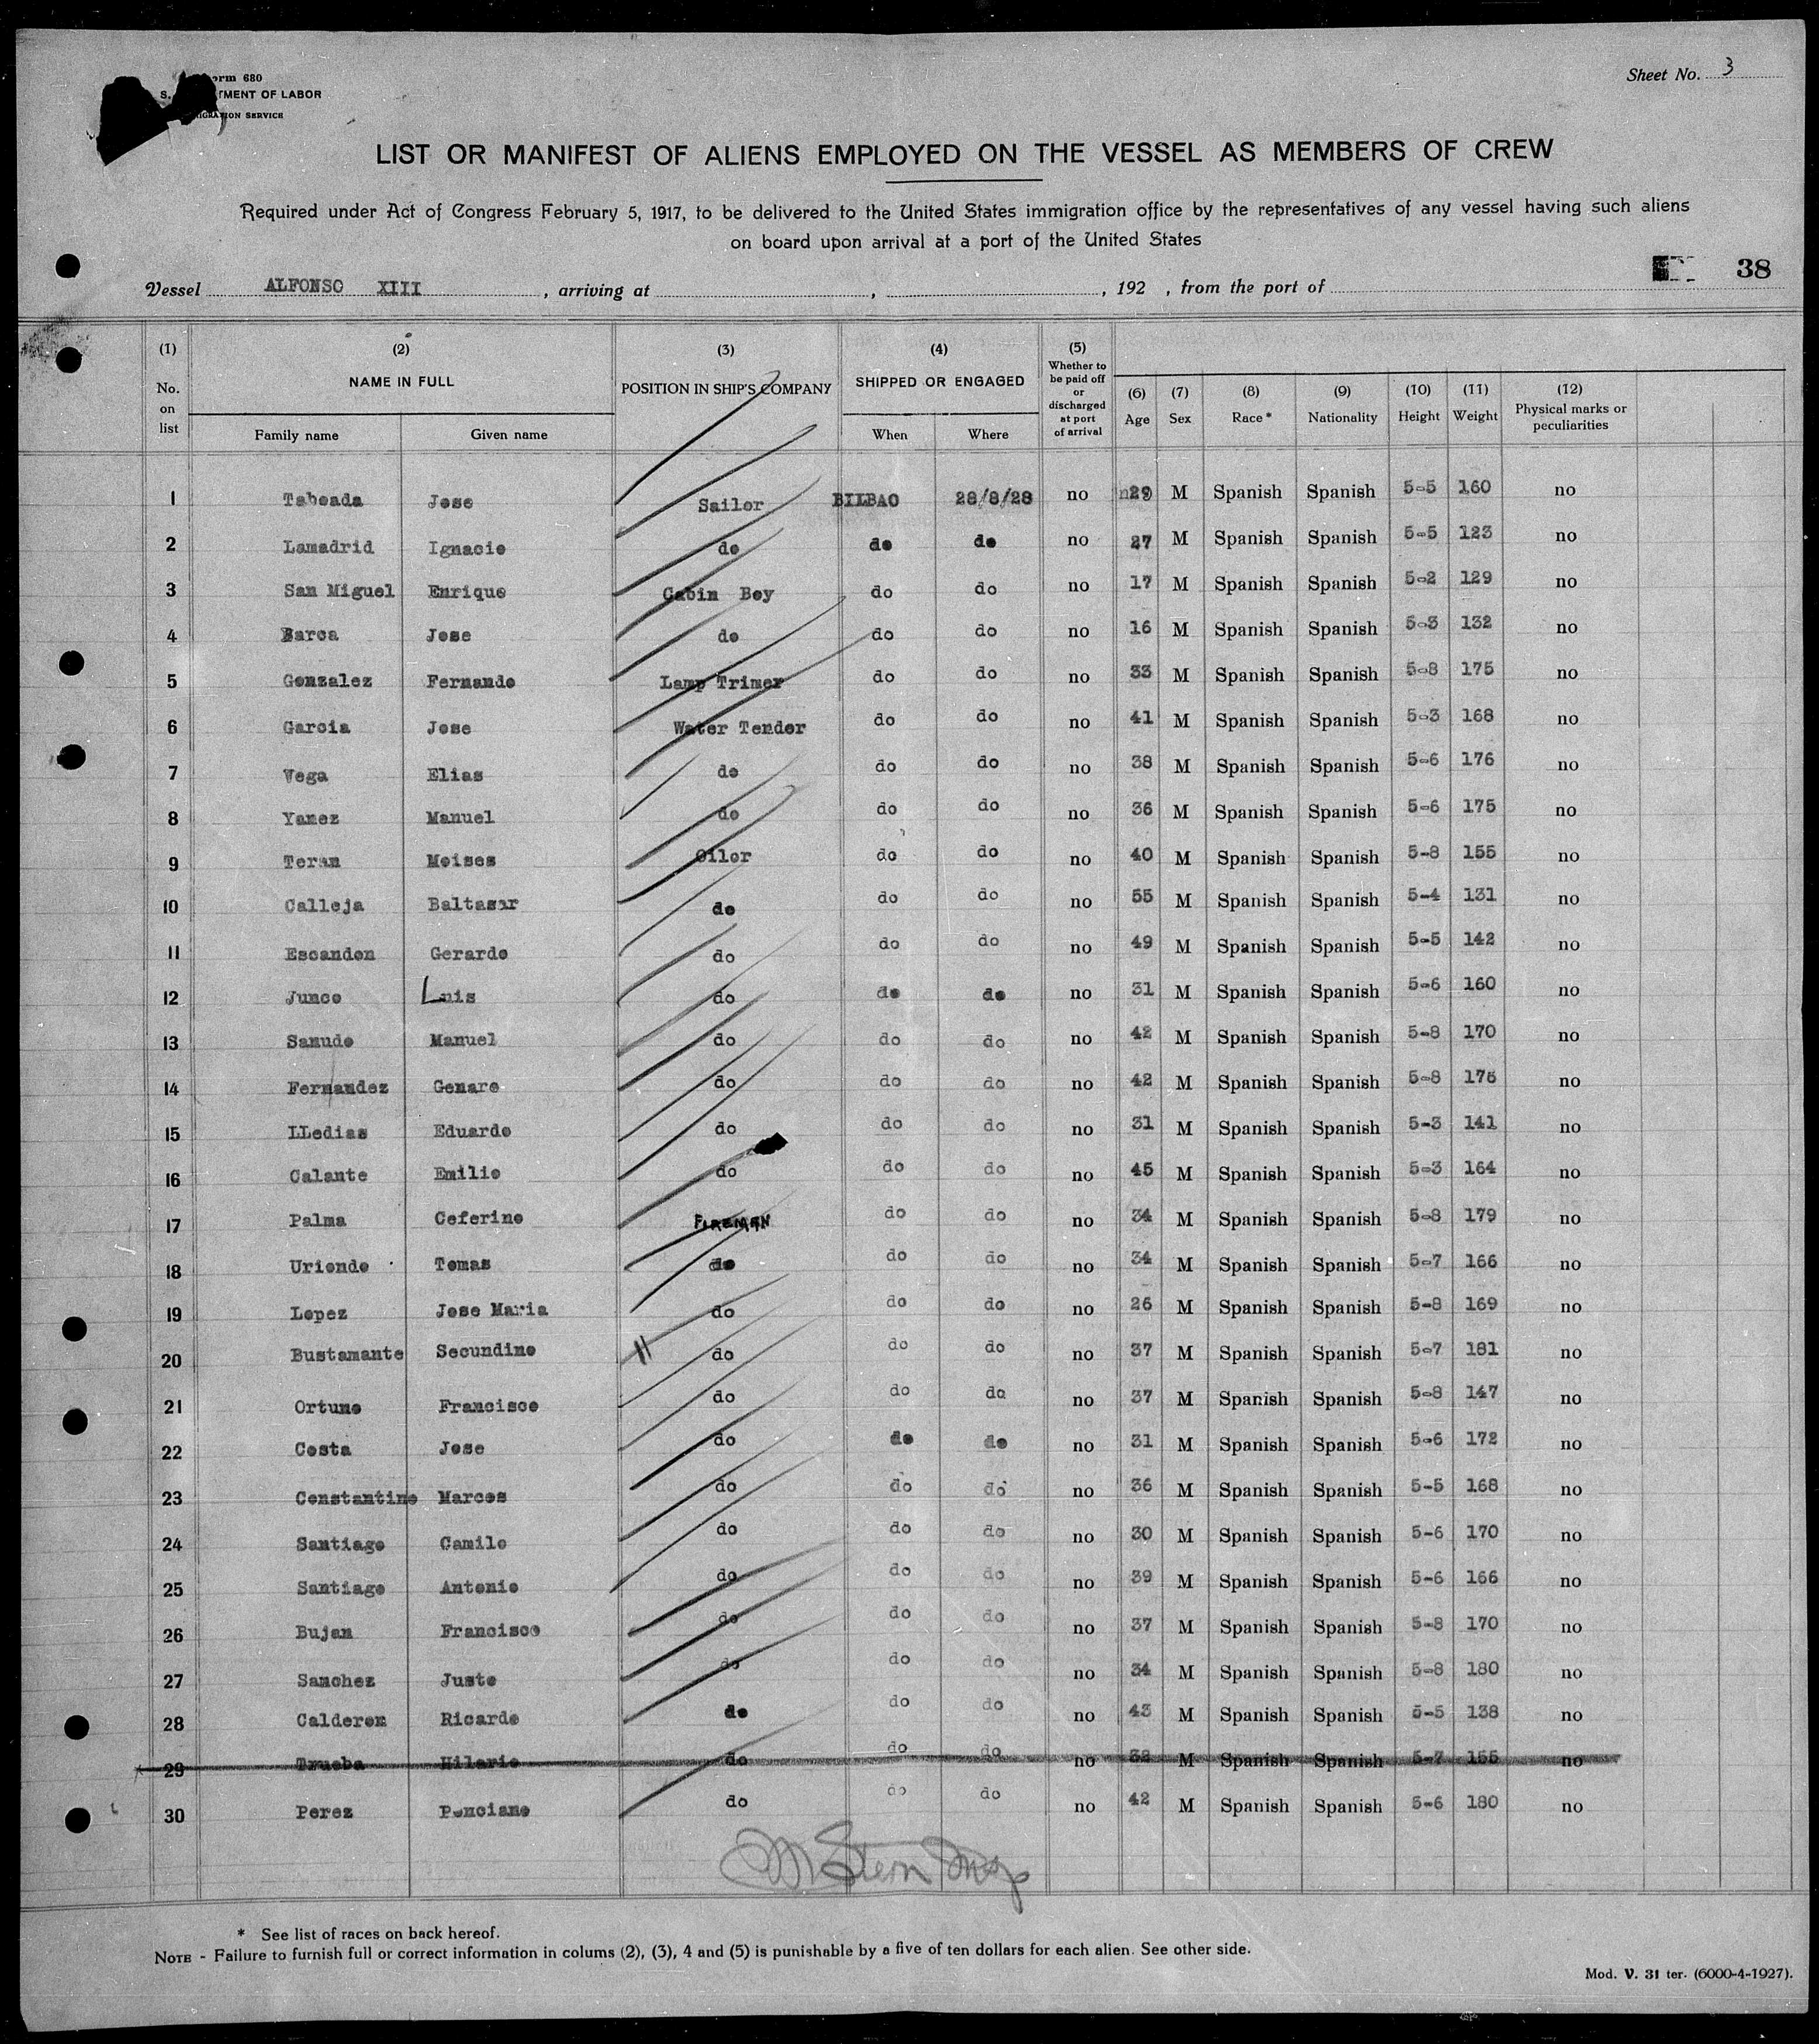 Sheet No. 3
orm 680
S. TMENT OF LABOR
IGRATION SERVICE
LIST OR MANIFEST OF ALIENS EMPLOYED ON THE VESSEL AS MEMBERS OF CREW
Required under Act of Congress February 5, 1917, to be delivered to the United States immigration office by the representatives of any vessel having such aliens
on board upon arrival at a port of the United States
38
Vessel ALFONSO XIII , arriving at , , 192 , from the port of
(1) No. on list
(2) NAME IN FULL
Family name Given name
(3) POSITION IN SHIP'S COMPANY
(4) SHIPPED OR ENGAGED
When Where
(5) Whether to be paid off or discharged at port of arrival
(6) Age
(7) Sex
(8) Race *
(9) Nationality
(10) Height
(11) Weight
(12) Physical marks or peculiarities
1 Taboada Jose Sailor BILBAO 28/8/28 no 29 M Spanish Spanish 5-5 160 no
2 Lamadrid Ignacio do do do no 27 M Spanish Spanish 5-5 123 no
3 San Miguel Enrique Cabin Boy do do no 17 M Spanish Spanish 5-2 129 no
4 Barca Jose do do do no 16 M Spanish Spanish 5-3 132 no
5 Gonzalez Fernando Lamp Trimer do do no 33 M Spanish Spanish 5-8 175 no
6 Garcia Jose Water Tender do do no 41 M Spanish Spanish 5-3 168 no
7 Vega Elias do do do no 38 M Spanish Spanish 5-6 176 no
8 Yanez Manuel do do do no 36 M Spanish Spanish 5-6 175 no
9 Teran Moises Oiler do do no 40 M Spanish Spanish 5-8 155 no
10 Calleja Baltasar do do do no 55 M Spanish Spanish 5-4 131 no
11 Escandon Gerardo do do do no 49 M Spanish Spanish 5-5 142 no
12 Junco Luis do do do no 31 M Spanish Spanish 5-6 160 no
13 Samudo Manuel do do do no 42 M Spanish Spanish 5-8 170 no
14 Fernandez Genaro do do do no 42 M Spanish Spanish 5-8 175 no
15 LLedias Eduardo do do do no 31 M Spanish Spanish 5-3 141 no
16 Galante Emilio do do do no 45 M Spanish Spanish 5-3 164 no
17 Palma Ceferino FIREMAN do do no 34 M Spanish Spanish 5-8 179 no
18 Uriondo Tomas do do do no 34 M Spanish Spanish 5-7 166 no
19 Lopez Jose Maria do do do no 26 M Spanish Spanish 5-8 169 no
20 Bustamante Secundino do do do no 37 M Spanish Spanish 5-7 181 no
21 Ortuno Francisco do do do no 37 M Spanish Spanish 5-8 147 no
22 Costa Jose do do do no 31 M Spanish Spanish 5-6 172 no
23 Constantino Marcos do do do no 36 M Spanish Spanish 5-5 168 no
24 Santiago Camilo do do do no 30 M Spanish Spanish 5-6 170 no
25 Santiago Antonio do do do no 39 M Spanish Spanish 5-6 166 no
26 Bujan Francisco do do do no 37 M Spanish Spanish 5-8 170 no
27 Sanchez Justo do do do no 34 M Spanish Spanish 5-8 180 no
28 Calderon Ricardo do do do no 43 M Spanish Spanish 5-5 138 no
29 Trueba Hilario do do do no 32 M Spanish Spanish 5-7 155 no
30 Perez Ponciano do do do no 42 M Spanish Spanish 5-6 180 no
M Stern Insp
* See list of races on back hereof.
NOTE - Failure to furnish full or correct information in colums (2), (3), 4 and (5) is punishable by a five of ten dollars for each alien. See other side.
Mod. V. 31 ter. (6000-4-1927).